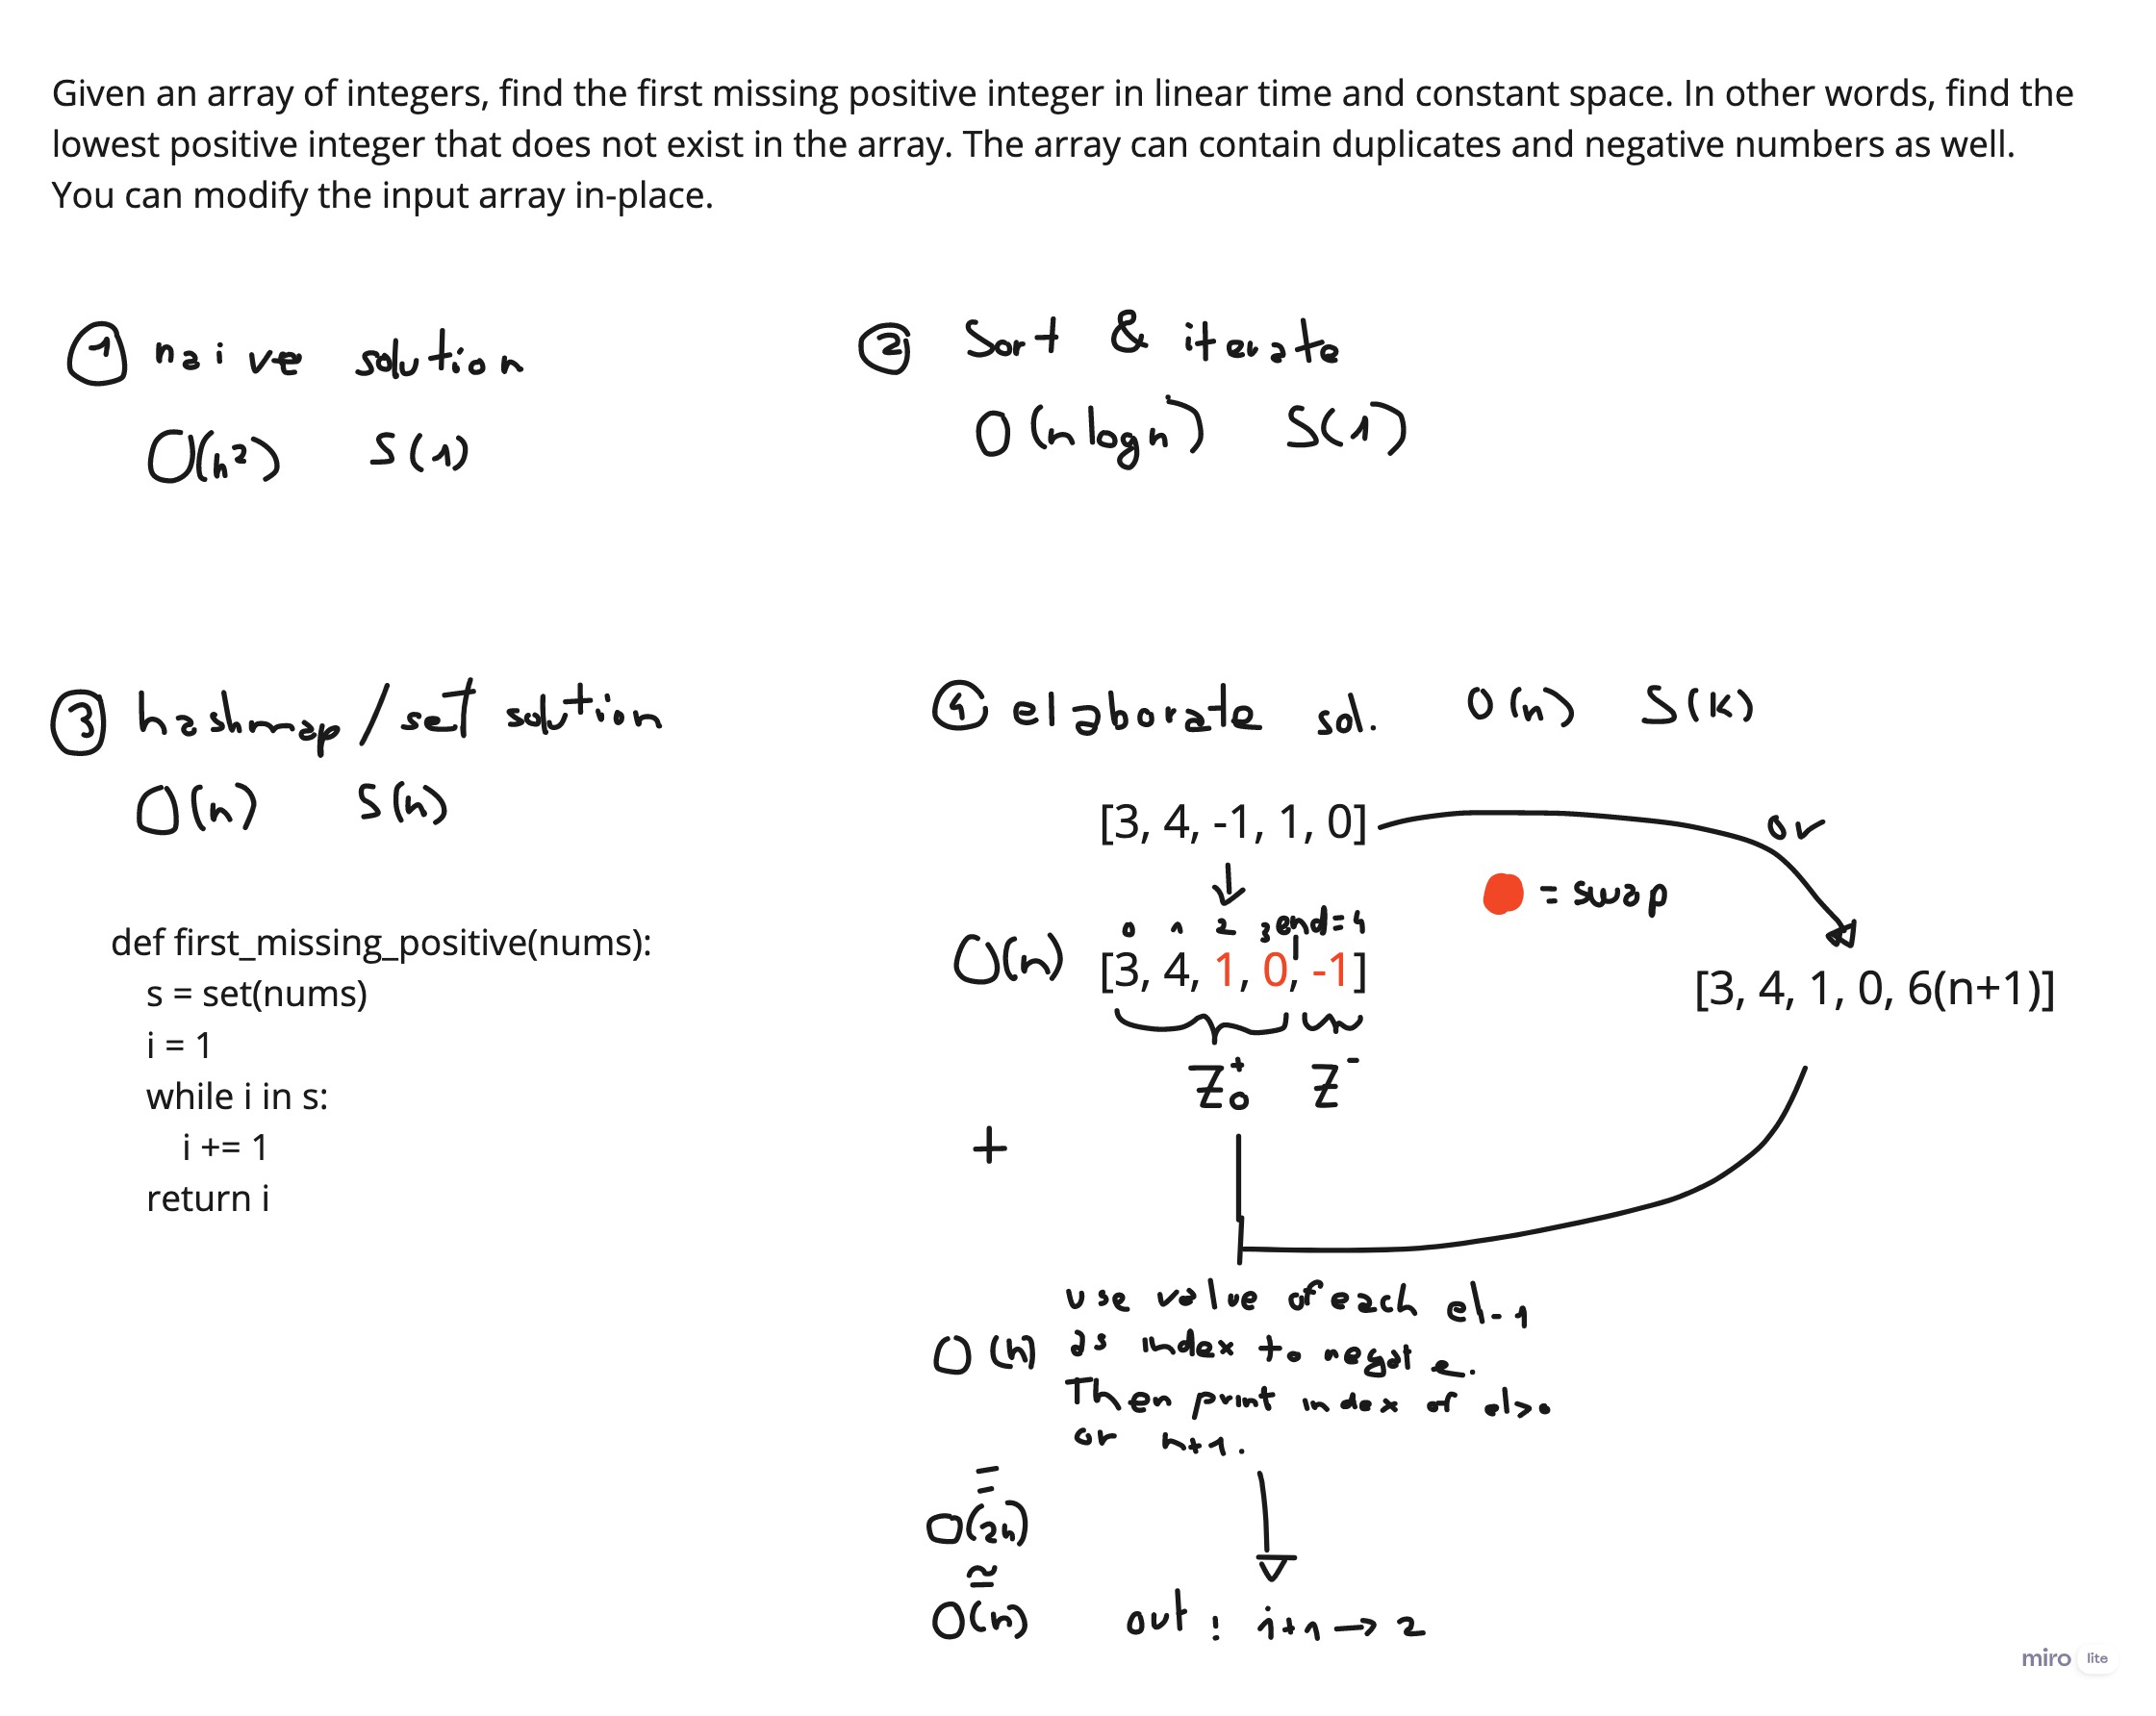 Given an array of integers, find the first missing positive integer in linear time and constant space. In other words, find the
lowest positive integer that does not exist in the array. The array can contain duplicates and negative numbers as well.
You can modify the input array in-place.
① naive solution
O(n²) S(1)
② Sort & iterate
O(n logn) S(1)
③ hashmap/set solution
O(n) S(n)
def first_missing_positive(nums):
s = set(nums)
i = 1
while i in s:
i += 1
return i
④ elaborate sol. O(n) S(K)
[3, 4, -1, 1, 0]
or
= swap
0 1 2 3 end=4
O(n) [3, 4, 1, 0, -1]
[3, 4, 1, 0, 6(n+1)]
Z₀⁺ Z⁻
+
use value of each el-1
O(n) as index to negate.
Then print index of el>0
or n+1.
=
O(2n)
≃
O(n) out: i+1 → 2
miro lite